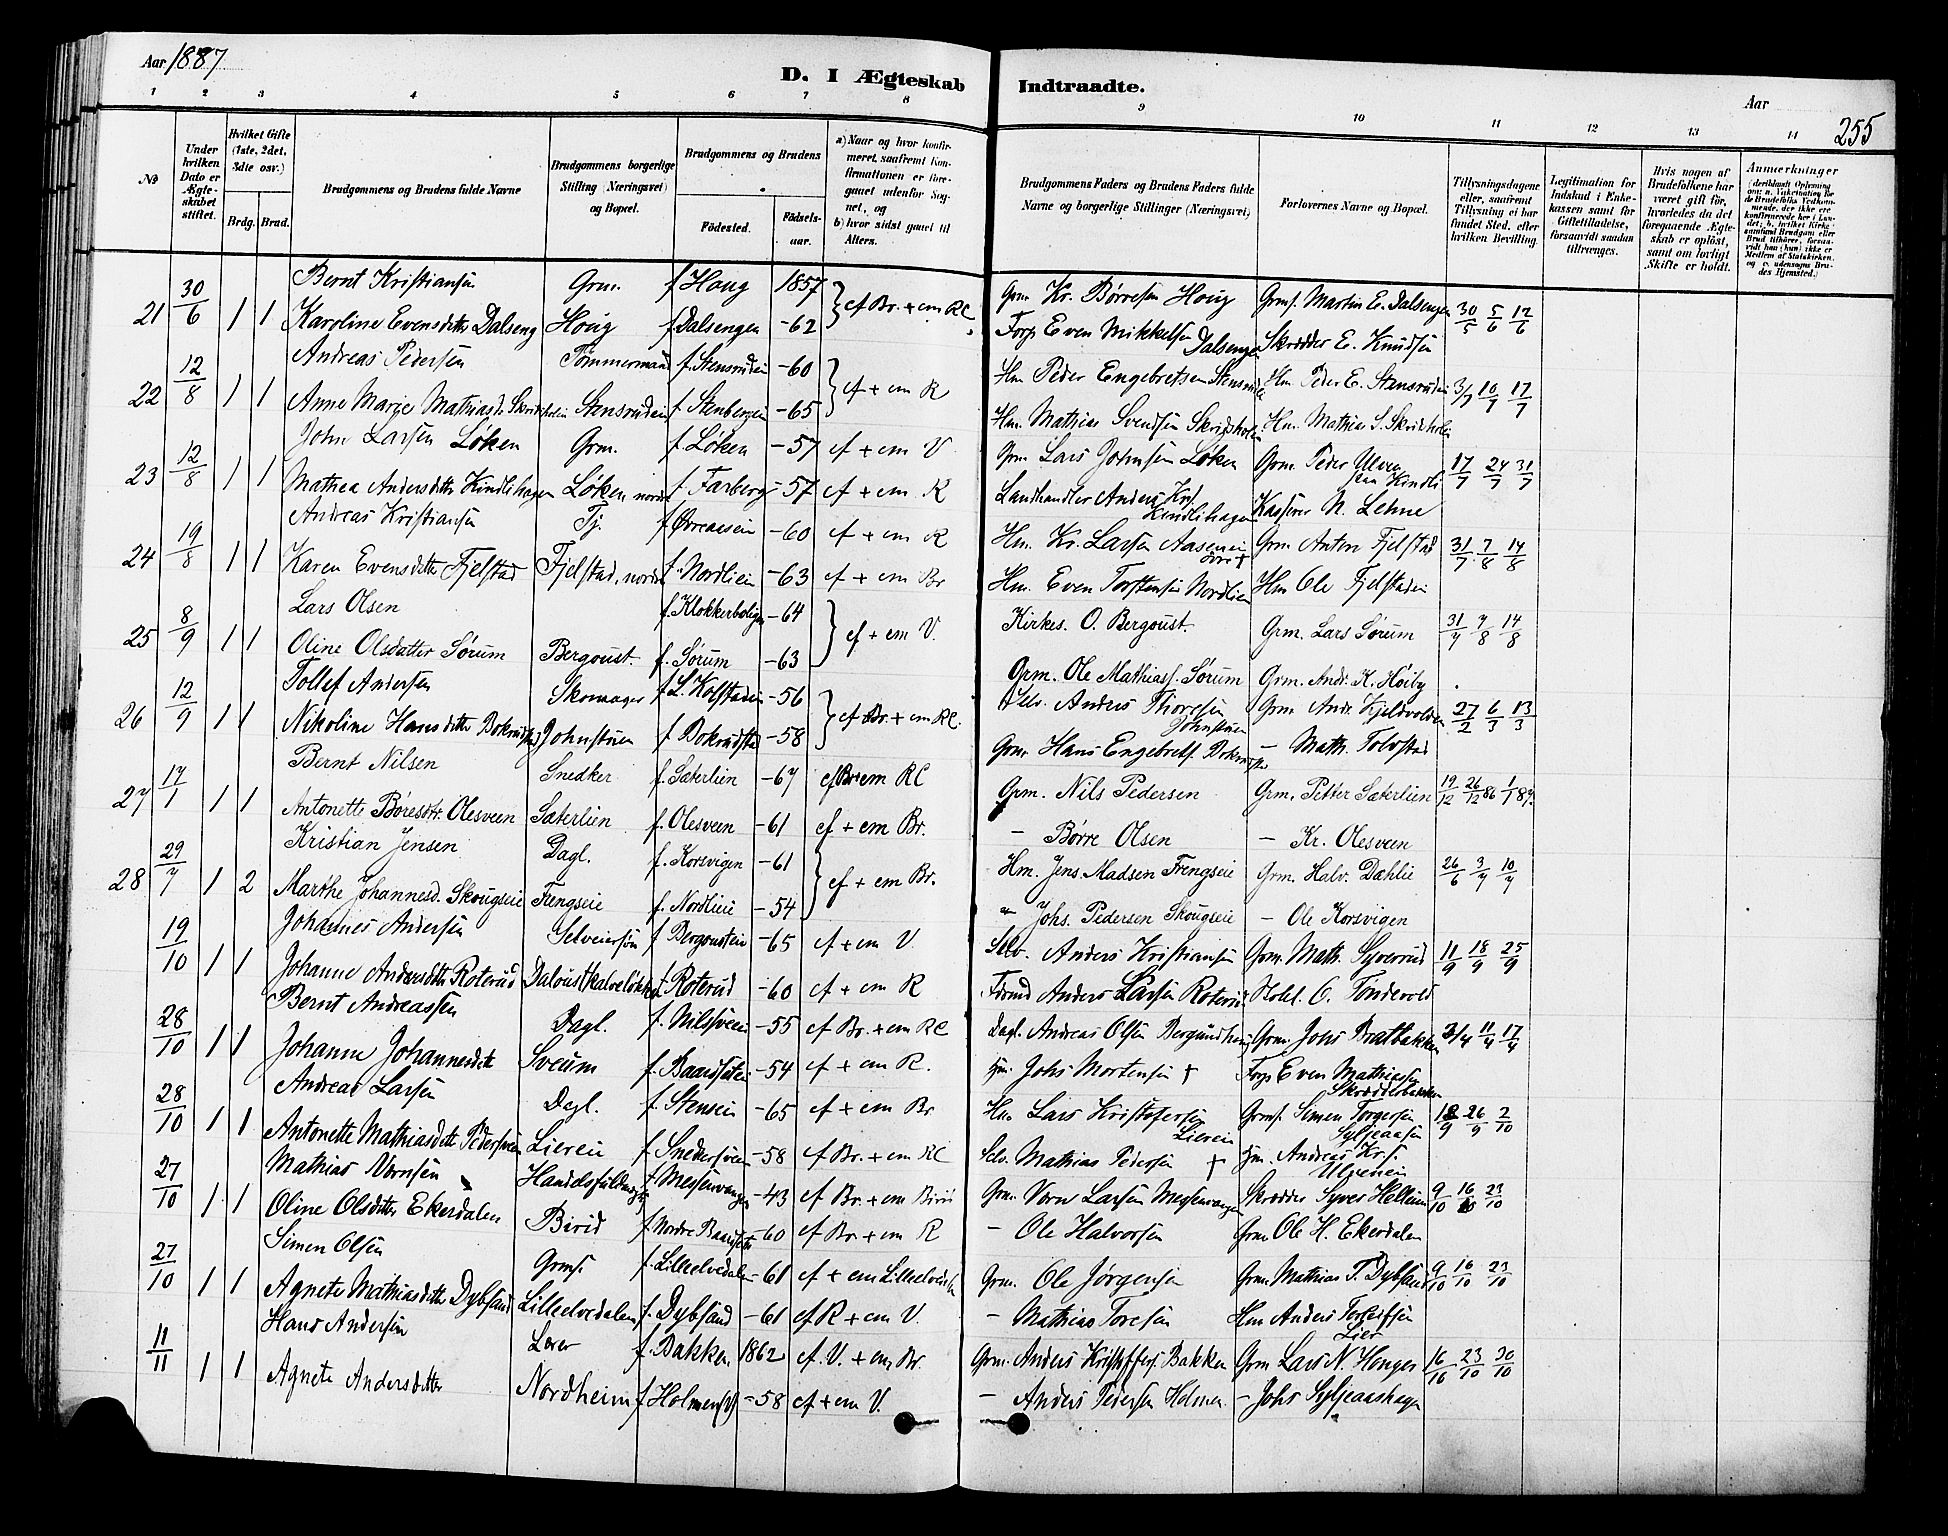 Aar 1887
D. I Ægteskab Indtraadte.
Aar
255
1 2 3 4 5 6 7 8 9 10 11 12 13 14
No
Under hvilken Dato er Ægteskabet stiftet.
Hvilket Gifte (1ste, 2det, 3die osv.)
Brdg. Brud.
Brudgommens og Brudens fulde Navne
Brudgommens borgerlige Stilling (Næringsvei) og Bopæl.
Brudgommens og Brudens
Fødested. Fødselsaar.
a) Naar og hvor konfirmeret, saafremt Konfirmationen er foregaaet udenfor Sognet, og
b) hvor sidst gaaet til Alters.
Brudgommens Faders og Brudens Faders fulde Navne og borgerlige Stillinger (Næringsvei)
Forlovernes Navne og Bopæl.
Tillysningsdagene eller, saafremt Tillysning ei har fundet Sted, efter hvilken Bevilling.
Legitimation for Indskud i Enkekassen samt for Giftetilladelse, forsaavidt saadan tiltrænges.
Hvis nogen af Brudefolkene har været gift før, hvorledes da det foregaaende Ægteskab er opløst, samt om lovligt Skifte er holdt.
Anmærkninger
21 30/6 1 1 Bernt Kristiansen Grm. f Houg 1857 cf Br. + em RC Grm Kr. Børresen Houg Grms. Martin E. Dalsengen 30/5 5/6 12/6
Karoline Evensdatter Dalseng Houg f Dalsengen -62 Forp Even Mikkelsen Dalsengen Skrædder E. Knudsen
22 12/8 1 1 Andreas Pedersen Tømmermand f. Stensruden -60 cf + em R Hm Peder Engebretsen Stensruden Hm Peder E. Stensruden 3/7 10/7 17/7
Anne Marie Mathiasd. Skridsholen Stensruden f Stenbergen -65 Hm. Mathias Svendsen Skridsholen Hm. Mathias S. Skridsholen
23 12/8 1 1 John Larsen Løken Grm. f. Løken -57 cf + em V Grm Lars Johnsen Løken Grm. Peder Ulven 17/7 24/7 31/7
Mathea Andersdatter Kindlihagen Løken nordre f Farberg -57 cf + em R Landhandler Anders Krs. Kindlihagen Kasserer N. Lehne
24 19/8 1 1 Andreas Kristiansen Tj. -60 cf + em R Hm. Kr. Larsen Grm Anton Fjelstad 31/7 7/8 14/8
Karen Evensdatter Fjelstad Fjelstad, nordre f. Nordlien -63 cf + em Br Hm. Even Torstensen Nordlien Hm Ole Fjelstaden
25 8/9 1 1 Lars Olsen f. Klokkerboligen -64 cf + em V. Kirkes. O. Bergoust. Grm. Lars Sørum 31/7 7/8 14/8
Oline Olsdatter Sørum Bergoust. f. Sørum -63 Grm. Ole Mathiass. Sørum Grm. Andr. K. Høiby
26 12/9 1 1 Tollef Andersen Skomager f. L. Kolstaden -56 cf Br. + em RC. Selv. Anders Thoresen Johnstuen Grm Andr. Kjeldvolden 27/2 6/3 13/3
Nikoline Hansdatter Bokrudstad Johnstuen f Bokrudstad -58 Grm. Hans Engebrets. Bokrudstad — Math. Tolvstad
27 17/1 1 1 Bernt Nilsen Snedker f. Sæterlien -67 cf Br + em RC Grm. Nils Pedersen Grm. Petter Sæterlien 19/12 26/12 86 1/1 87.
Antonette Børesdtr. Olesveen Sæterlien f. Olesveen -61 cf + em Br. — Børre Olsen — Kr. Olesveen
28 29/7 1 2 Kristian Jensen Dagl. f. Korsvigen -61 cf + em Br. Hm. Jens Madsen Frengseie Grm. Halv. Dæhlie 26/6 3/7 10/7
Marthe Johannesd. Skougseie Frengseie f. Nordlieie -54 Johs. Pedersen Skougseie — Ole Korsvigen
19/10 1 1 Johannes Andersen Selveiersøn f Bergoustein -65 cf + em V. Selv. Anders Kristiansen Grm. Math. Syverud 11/9 18/9 25/9
Johanne Andersdatter Roterud f. Roterud -60 cf + em R Anders Larsen Roterud O. Tondevold
28/10 1 1 Bernt Andreassen Dagl. f. Nilsveen -55 cf Br. + em RC Dagl. Andreas Olsen Grm. Johs Bratbakken 3/4 11/4 17/4
Johanne Johannesdtr Sveum f. Baardseten -54 cf + em R. Hm. Johs Mortensen + Forp Even Mathiasen Skrædderbakken
28/10 1 1 Andreas Larsen Dagl. f Stensein -65 cf + em Br Hm Lars Kristofersen Liereie Grms. Simen Torgersen Syljeaasen 18/9 26/9 2/10
Antonette Mathiasdatter Pedersveen Liereie f Snedersveen -58 cf Br. + em RC Selv. Mathias Pedersen + Hm. Andreas Kr.s. Ulveneie
27/10 1 1 Mathias Nornsen Handelsfuldmægtig f Messenvangen -43 cf Br. + em Birid Grm. Norn Larsen Messenvangen Skrædder Syver Hellium 9/10 16/10 23/10
Oline Olsdatter Ekerdalen Birid f Nordre Baardseth -60 cf Br. + em R — Ole Halvorsen Grm Ole H. Ekerdalen
27/10 1 1 Simen Olsen Grms. f. Lilleelvedalen -61 cf + em Lilleelvedalen Grm. Ole Jørgensen Grm Mathias T. Dybsand 9/10 16/10 23/10
Agnete Mathiasdatter Dybsand Lilleelvedalen f. Dybsand -61 cf R + em V. — Mathias Toresen Hm Anders Torleifsen Lier
11/11 1 1 Hans Andersen Lærer f. Bakken 1862 cf. V. + em Br. Grm. Anders Kristoffers. Bakken Grm Lars N. Honger 16/10 23/10 30/10
Agnete Andersdatter Nordheim f Holmen (V) -58 cf + em V. — Anders Pedersen Holmen — Johs Syljeaashagen